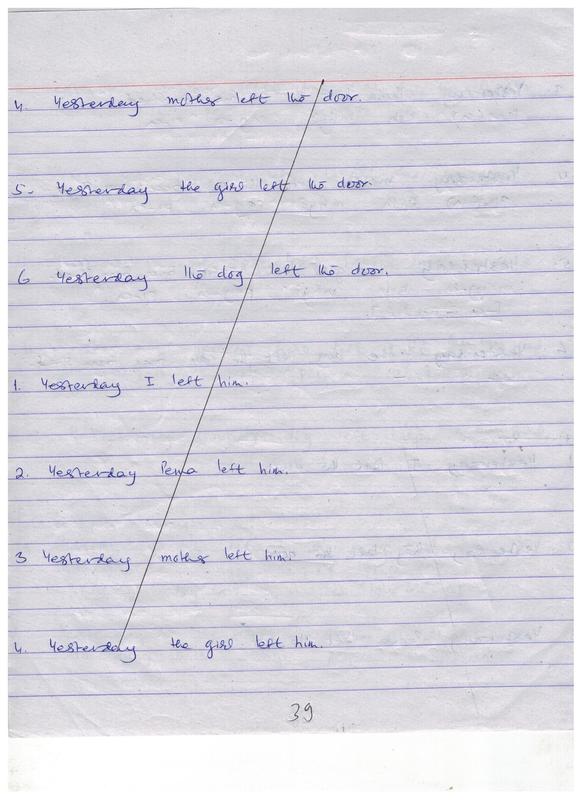 4. Yesterday mother left the door.
5- Yesterday the girl left the door.
6 Yesterday the dog left the door.
1. Yesterday I left him.
2. Yesterday Pema left him.
3 Yesterday mother left him.
4. Yesterday the girl left him.
39